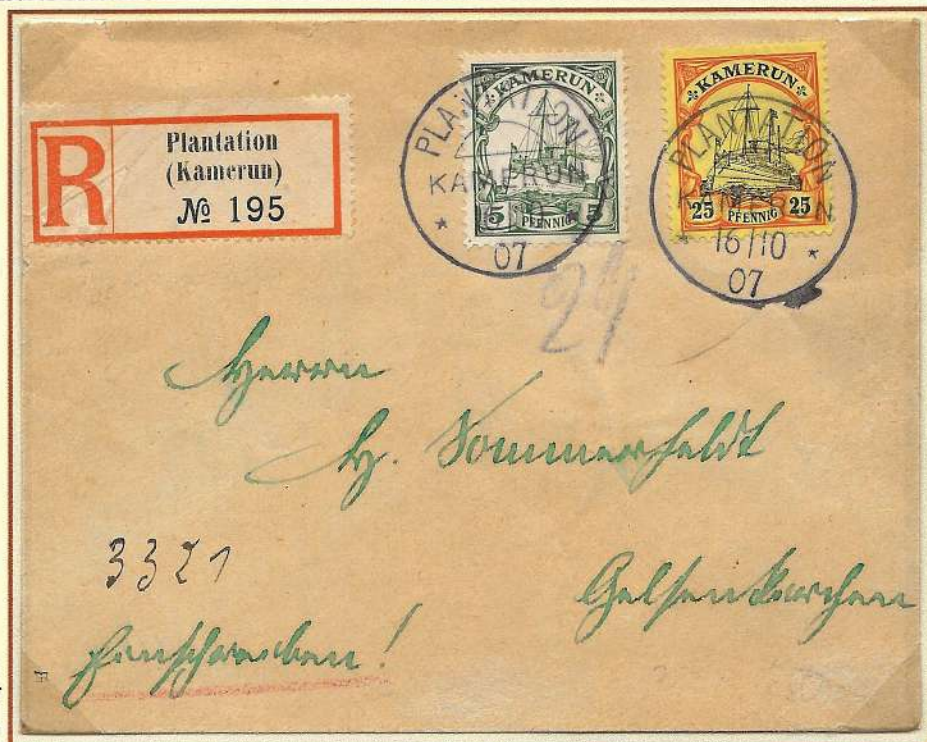 R
Plantation
(Kamerun)
№ 195
KAMERUN
5 PFENNIG 5
PLANTATION
KAMERUN
* *
07
KAMERUN
25 PFENNIG 25
PLANTATION
KAMERUN
* 16/10 *
07
Herrn
H. Sommerfeldt
3321
Gelsenkirchen
Einschreiben!